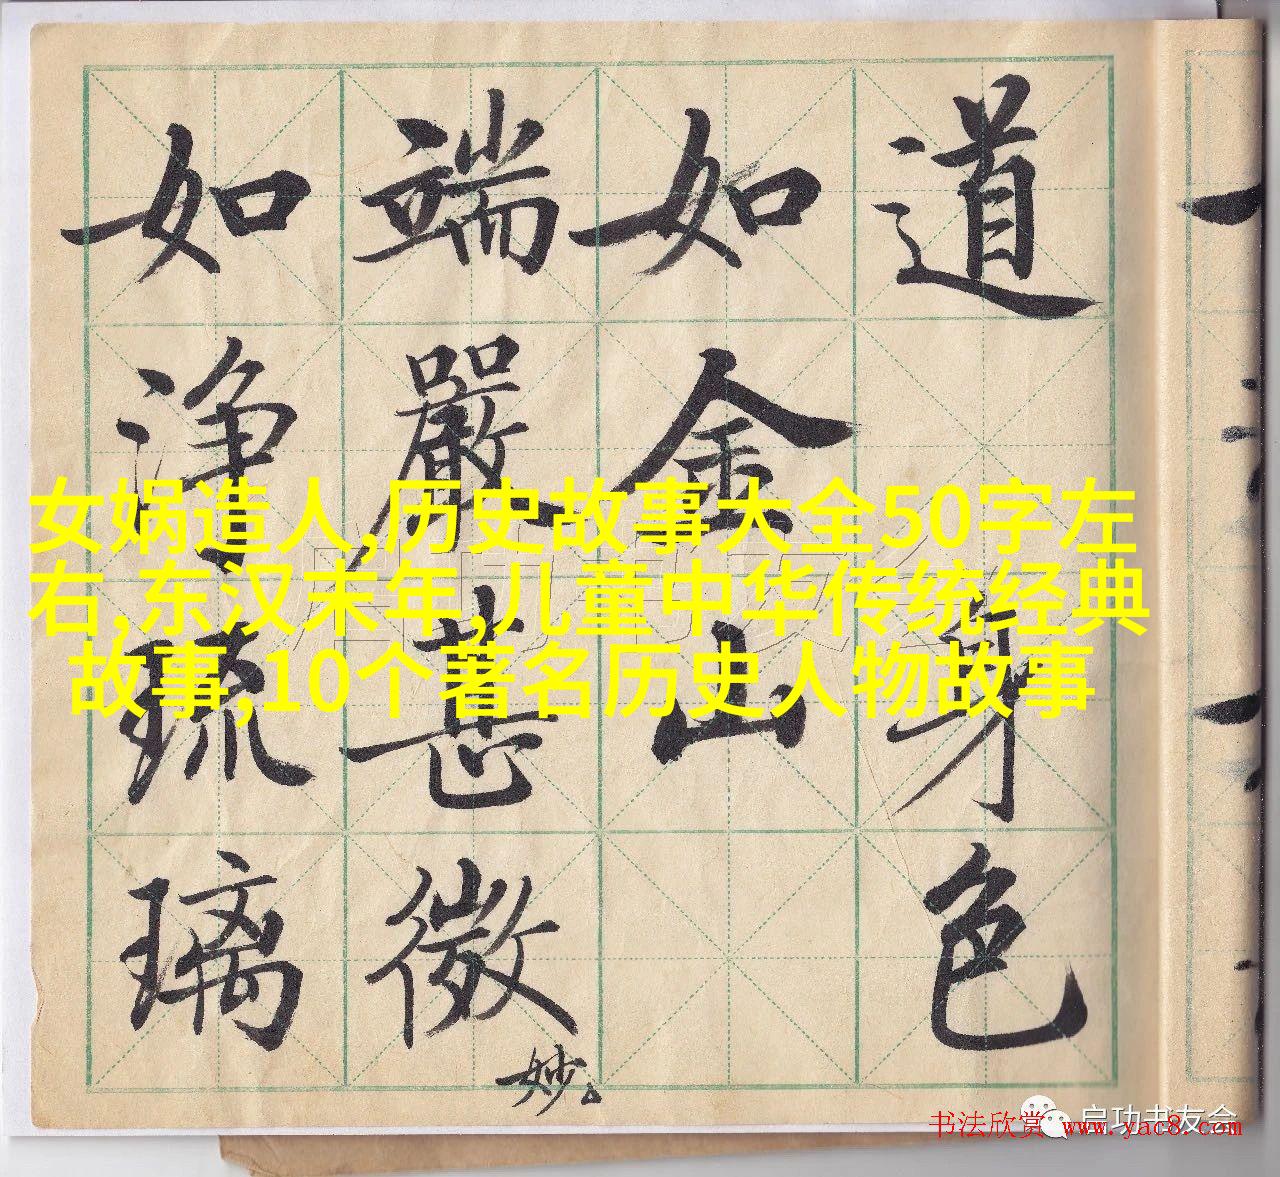 道身色
如金山
端嚴甚微妙
如净琉璃
女娲造人,历史故事大全50字左
右,东汉末年,儿童中华传统经典
故事,10个著名历史人物故事
启功书友会
书法欣赏 www.yac8.com